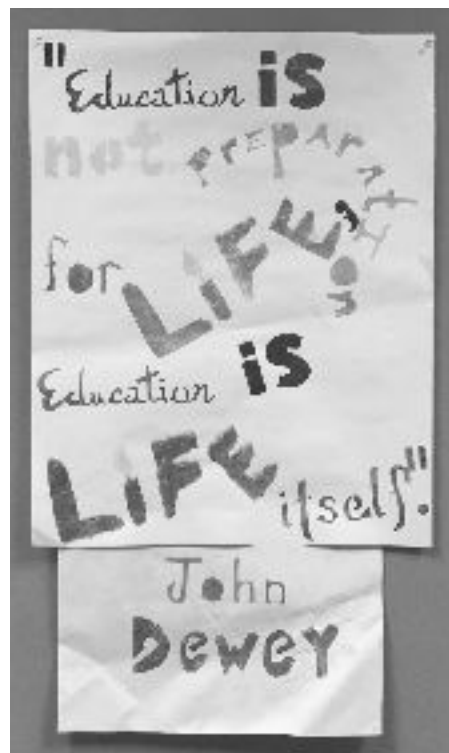 "Education is
not preparation
for LiFE,
Education is
LiFE itself".
John
DEWEY